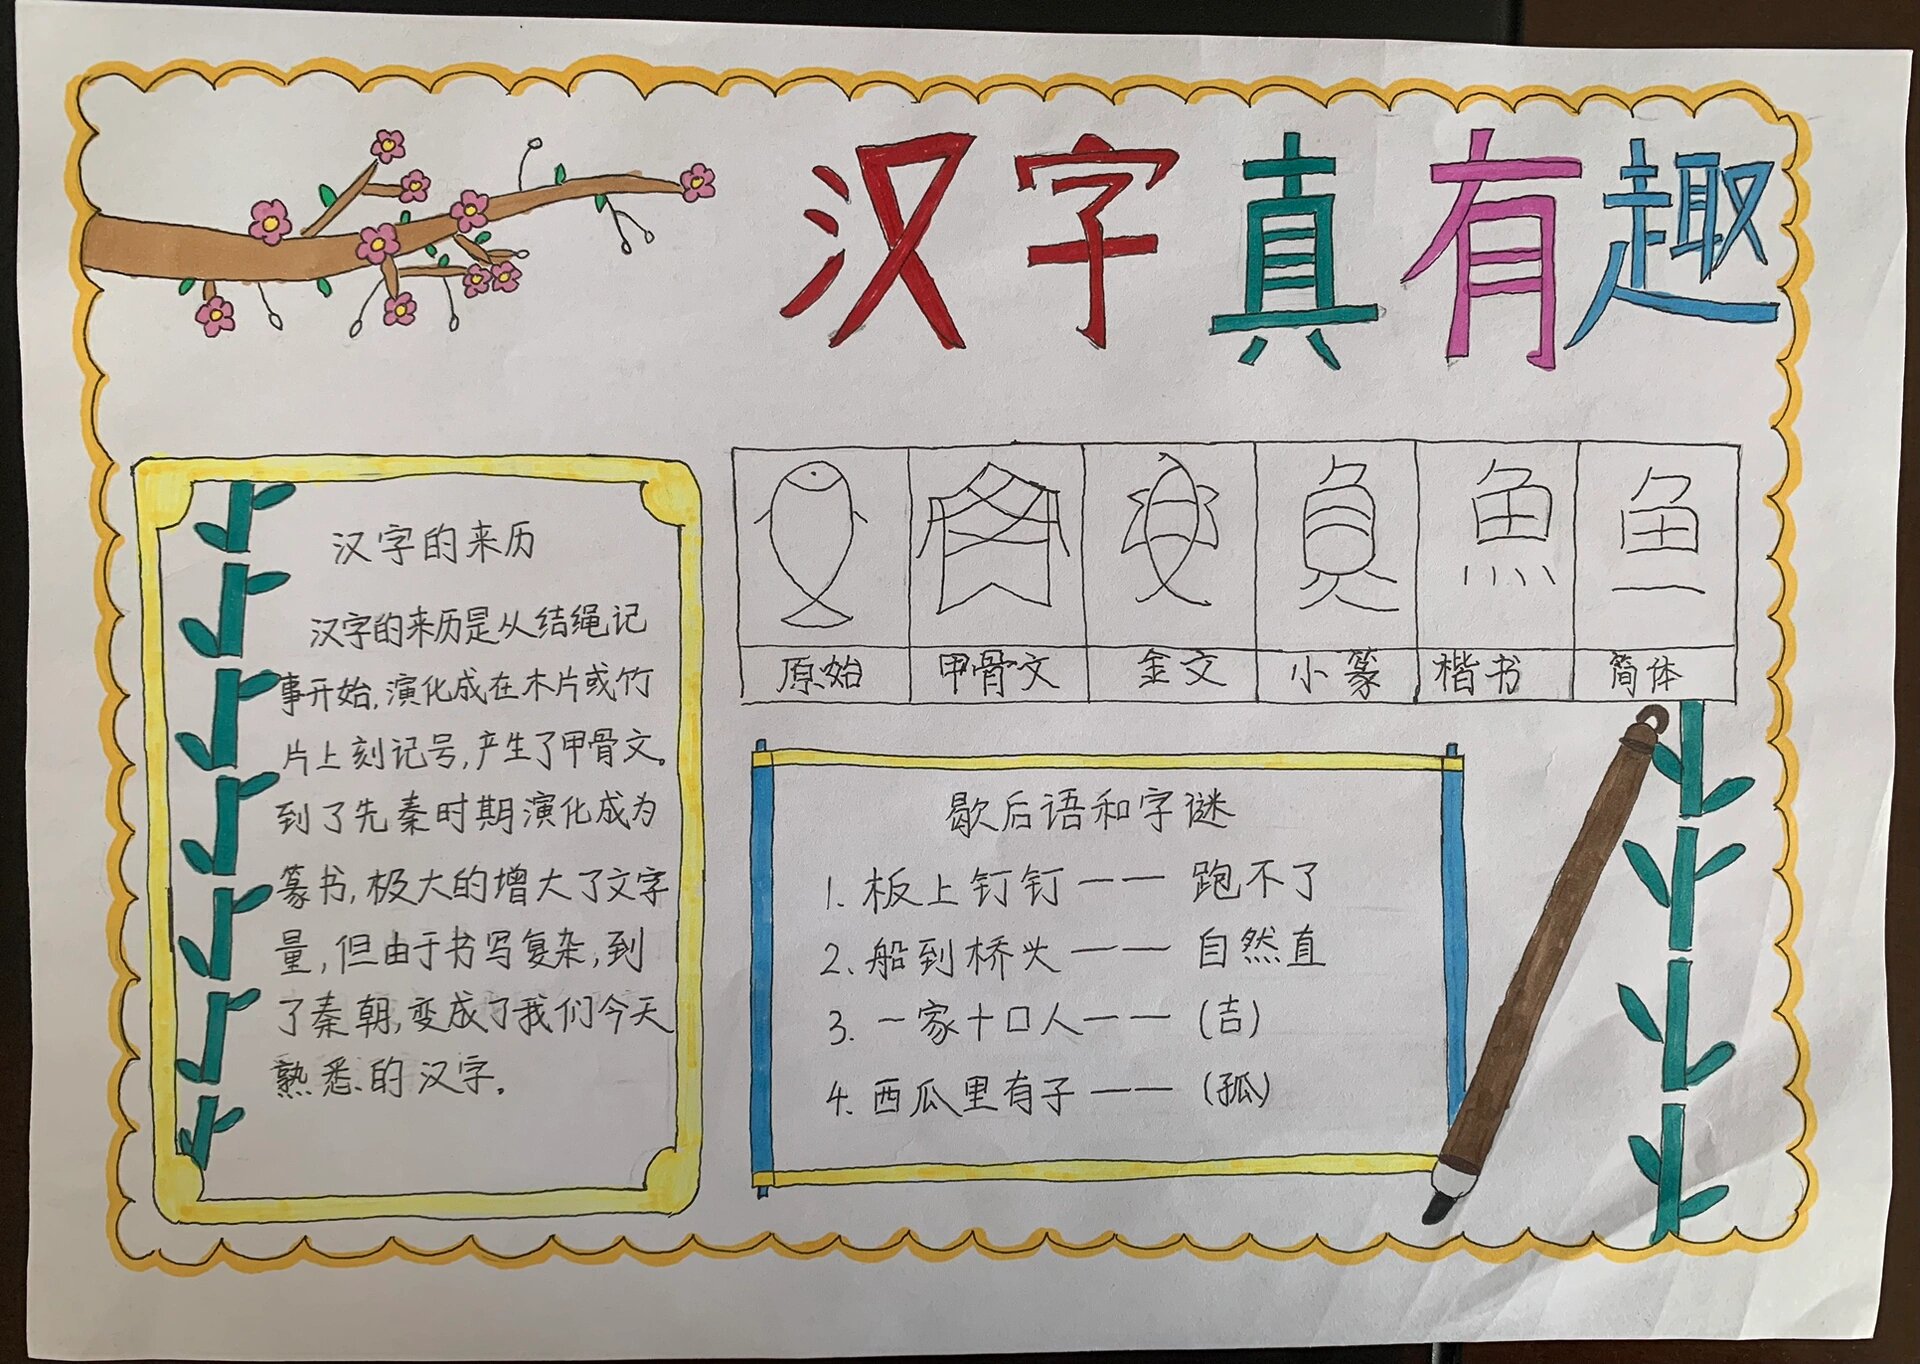 汉字真有趣
汉字的来历
汉字的来历是从结绳记
事开始,演化成在木片或竹
片上刻记号,产生了甲骨文。
到了先秦时期演化成为
篆书,极大的增大了文字
量,但由于书写复杂,到
了秦朝,变成了我们今天
熟悉的汉字。
魚 鱼
原始 甲骨文 金文 小篆 楷书 简体
歇后语和字谜
1. 板上钉钉一一 跑不了
2. 船到桥头一一 自然直
3. 一家十口人一一 (吉)
4. 西瓜里有子一一 (孤)